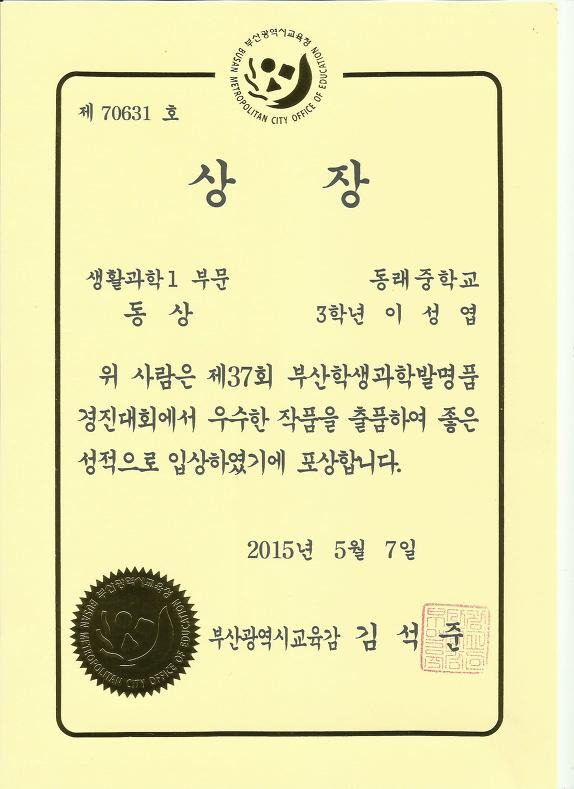 부산광역시교육청
BUSAN METROPOLITAN CITY OFFICE OF EDUCATION
제 70631 호
상 장
생활과학1 부문 동래중학교
동 상 3학년 이 성 엽
위 사람은 제37회 부산학생과학발명품
경진대회에서 우수한 작품을 출품하여 좋은
성적으로 입상하였기에 포상합니다.
2015년 5월 7일
부산광역시교육청
BUSAN METROPOLITAN CITY OFFICE OF EDUCATION
부산광역시교육감 김 석 준